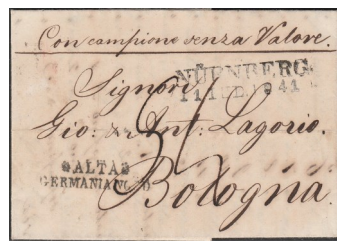 Con campione senza Valore.
NÜRNBERG
Signori
Gio: & Ant: Lagorio.
ALTA
GERMANIA
Bologna